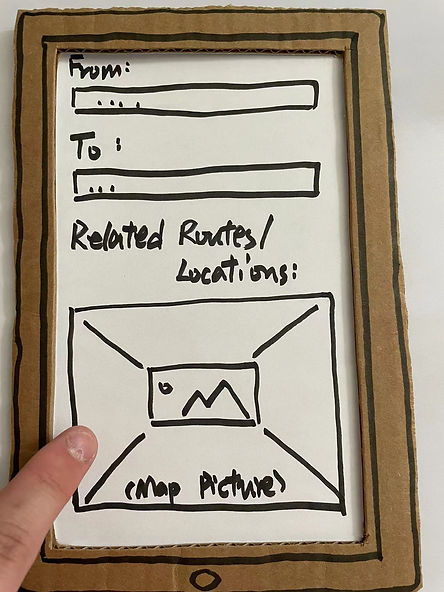 From:
....
To:
...
Related Routes/
Locations:
(Map Picture)